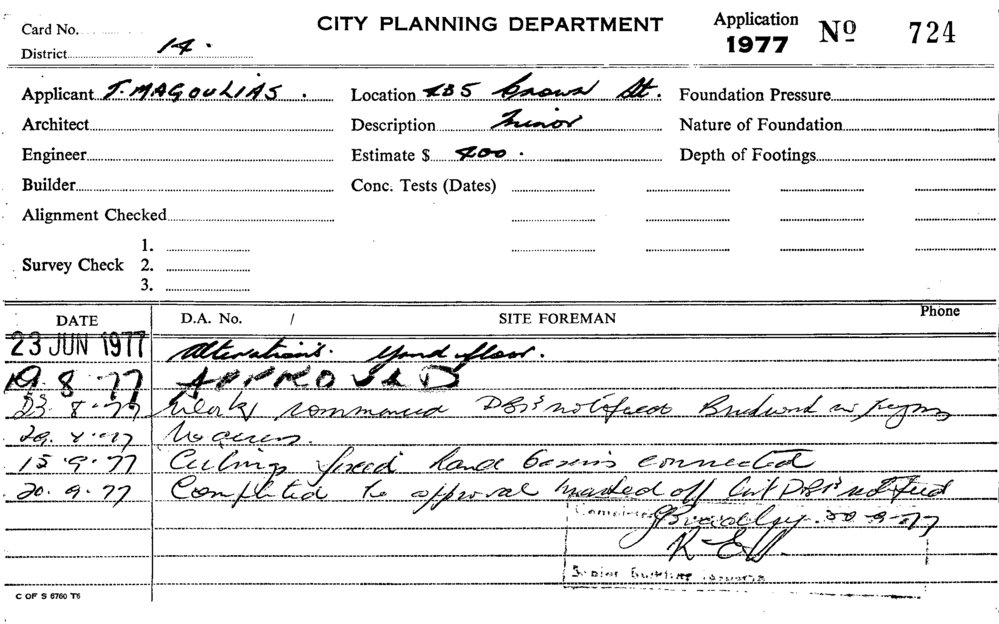 Card No.
CITY PLANNING DEPARTMENT
Application 1977 Nº 724
District 14.
Applicant T. MAGOULIAS. Location 485 Crown St. Foundation Pressure
Architect Description Minor Nature of Foundation
Engineer Estimate $ 400. Depth of Footings
Builder Conc. Tests (Dates)
Alignment Checked
1.
Survey Check 2.
3.
DATE D.A. No. / SITE FOREMAN Phone
23 JUN 1977 Alterations. floor.
19 8 77 APPROVED
23. 8. 77 Work commenced notified
29. 77 No access.
15. 9. 77 Ceilings fixed hand basins connected
20. 9. 77 Completed to approval marked off notified
20-9-77
Senior Building
C OF S 6760 T6